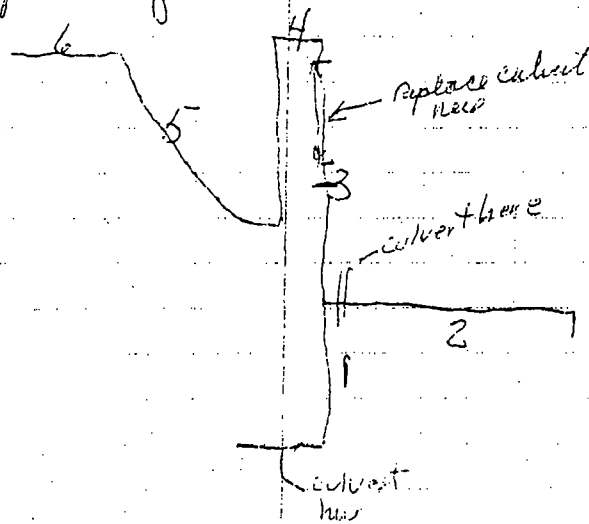 4
6
replace culvert
here
5
3
culvert here
2
1
culvert
here